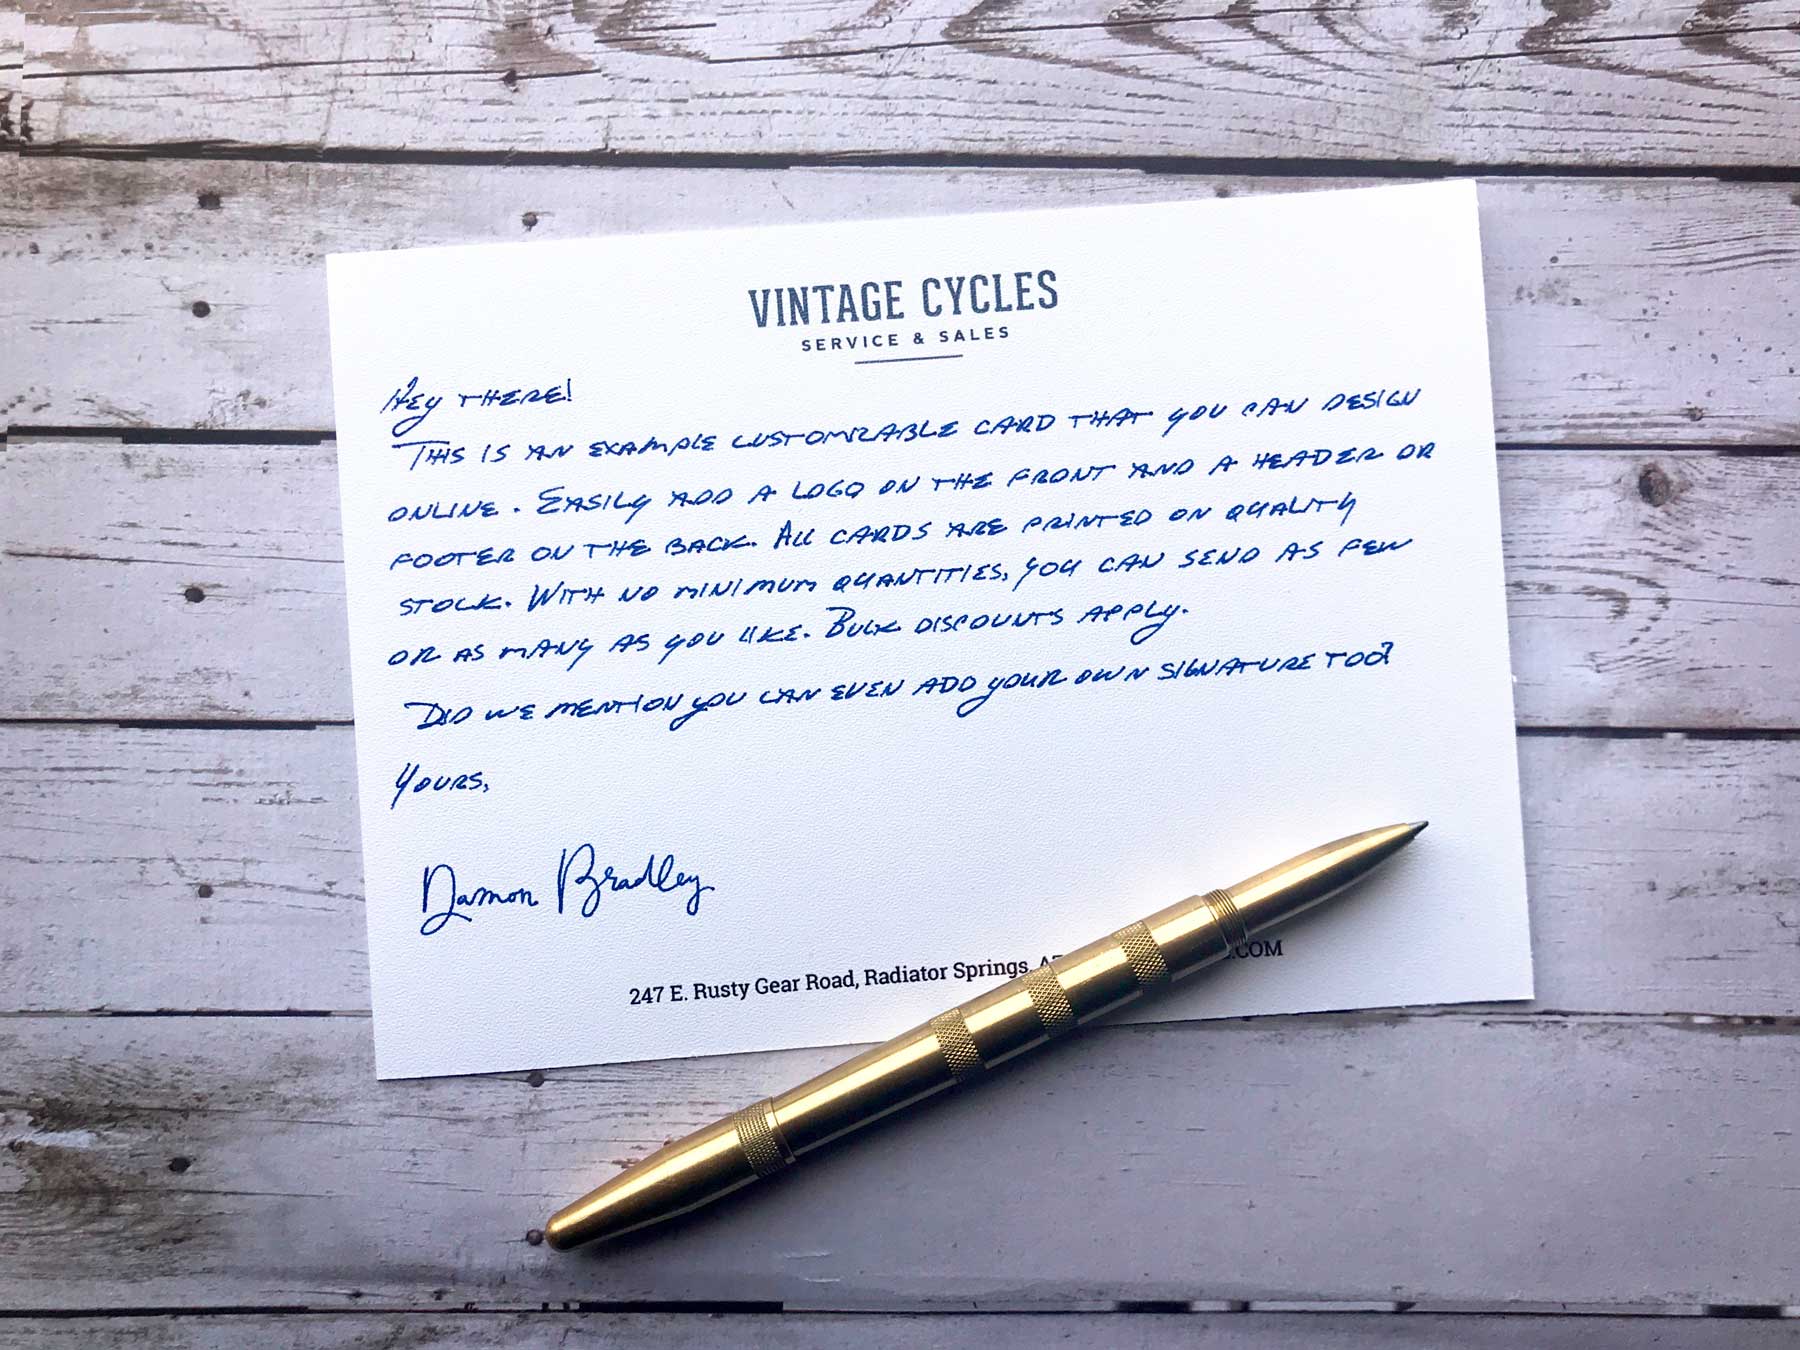 VINTAGE CYCLES
SERVICE & SALES
Hey THERE!
THIS IS AN EXAMPLE CUSTOMIZABLE CARD THAT YOU CAN DESIGN
ONLINE. EASILY ADD A LOGO ON THE FRONT AND A HEADER OR
FOOTER ON THE BACK. All CARDS ARE PRINTED ON QUALITY
STOCK. WITH NO MINIMUM QUANTITIES, YOU CAN SEND AS FEW
OR AS MANY AS YOU LIKE. BULK DISCOUNTS APPLY.
DID WE MENTION YOU CAN EVEN ADD YOUR OWN SIGNATURE TOO?
YOURS,
Damon Bradley
247 E. Rusty Gear Road, Radiator Springs, .COM